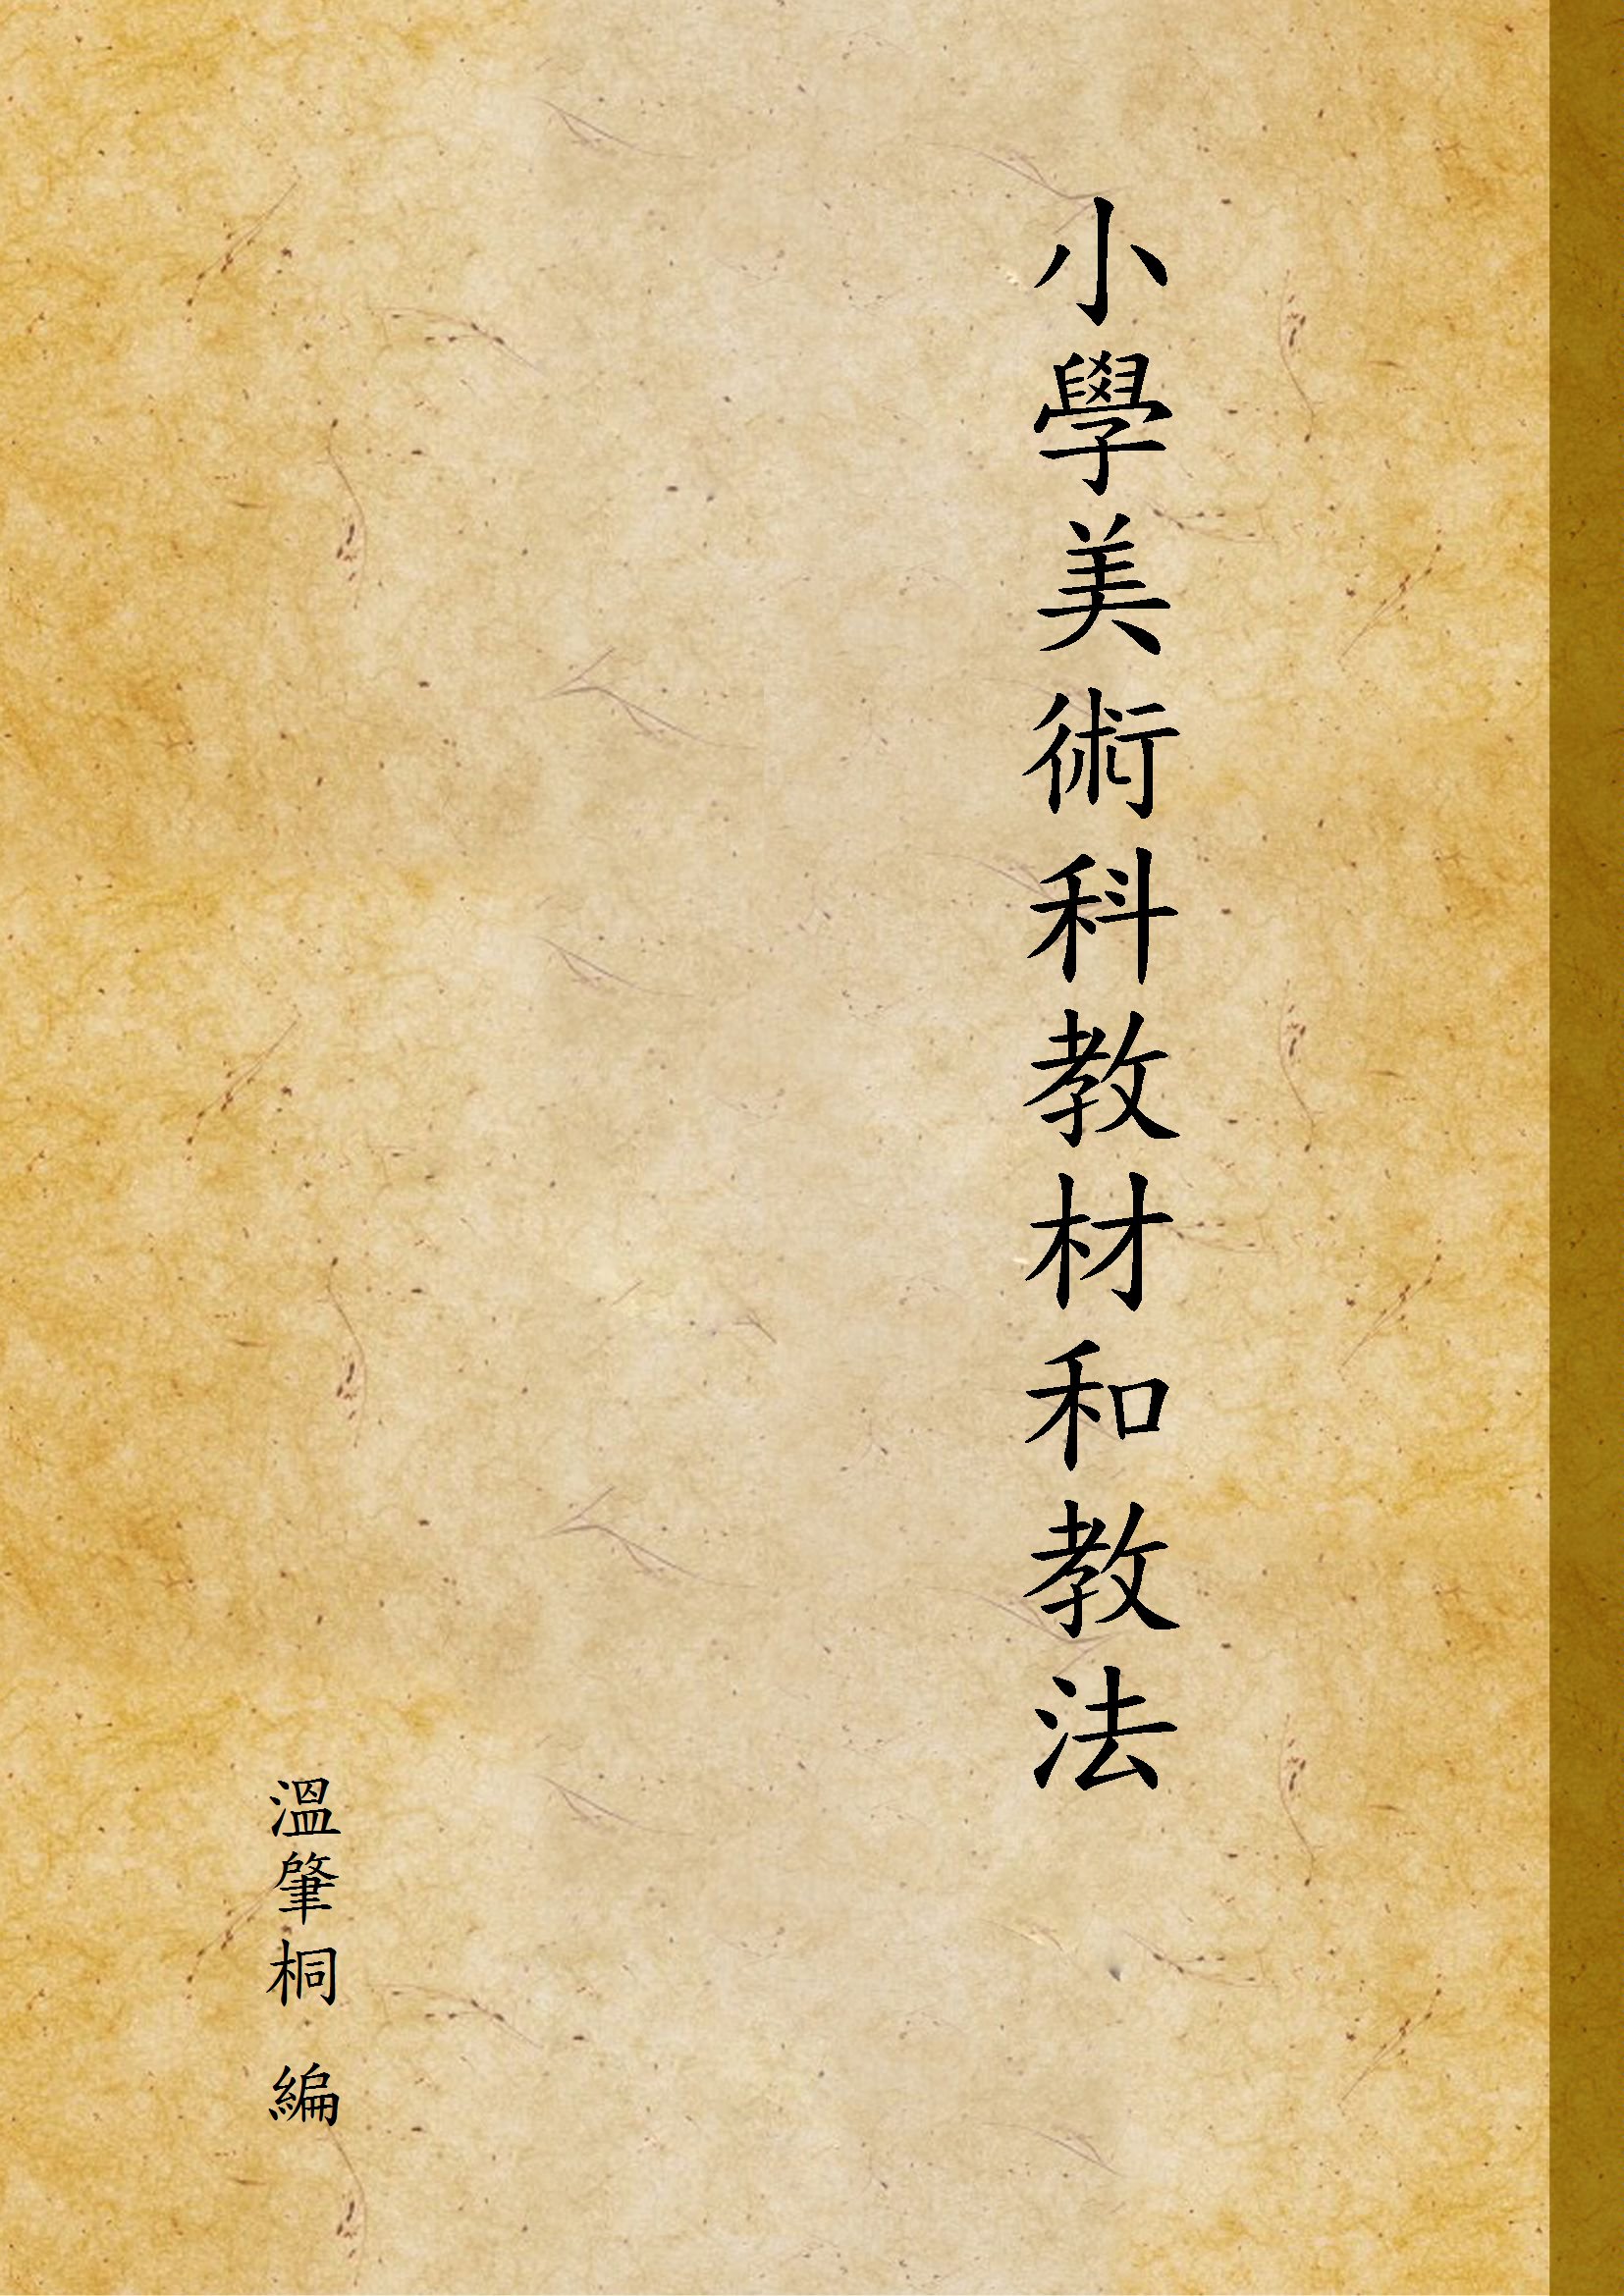 小學美術科教材和教法
溫肇桐 編